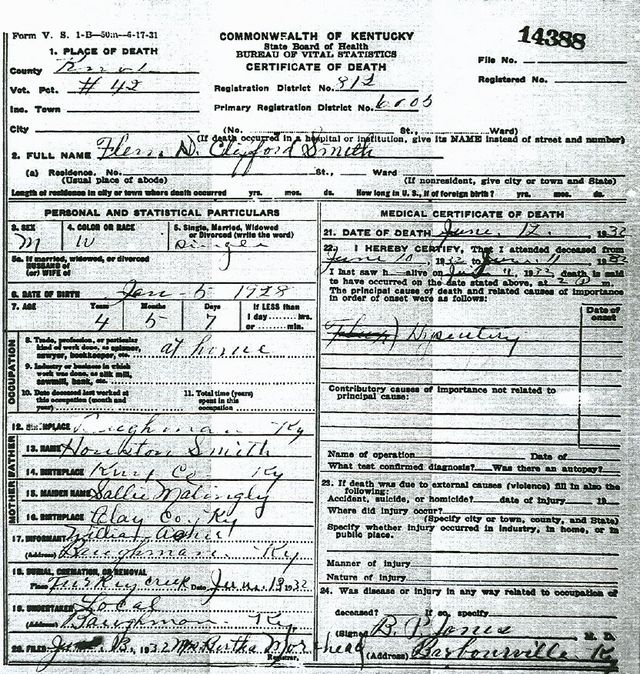 Form V. S. 1-B—50m—6-17-31
COMMONWEALTH OF KENTUCKY
State Board of Health
BUREAU OF VITAL STATISTICS
CERTIFICATE OF DEATH
14388
File No.
Registered No.
1. PLACE OF DEATH
County Knox
Vot. Pct. #42
Inc. Town
City
Registration District No. 812
Primary Registration District No.
(No. St., Ward)
(If death occurred in a hospital or institution, give its NAME instead of street and number)
2. FULL NAME Flem D. Clayford Smith
(a) Residence. No. St., Ward
(Usual place of abode) (If nonresident, give city or town and State)
Length of residence in city or town where death occurred yrs. mos. ds. How long in U. S., if of foreign birth? yrs. mos. ds.
PERSONAL AND STATISTICAL PARTICULARS
3. SEX
M
4. COLOR OR RACE
W
5. Single, Married, Widowed
or Divorced (write the word)
Single
5a. If married, widowed, or divorced
HUSBAND of
(or) WIFE of
6. DATE OF BIRTH Jan 5 1928
7. AGE Years Months Days If LESS than
1 day hrs.
or min.
4 5 7
OCCUPATION
8. Trade, profession, or particular
kind of work done, as spinner,
sawyer, bookkeeper, etc. at home
9. Industry or business in which
work was done, as silk mill,
sawmill, bank, etc.
10. Date deceased last worked at
this occupation (month and
year)
11. Total time (years)
spent in this
occupation
12. BIRTHPLACE Baughman Ky
FATHER
13. NAME Houston Smith
14. BIRTHPLACE Knox Co Ky
MOTHER
15. MAIDEN NAME Sallie Matingly
16. BIRTHPLACE Clay Co. Ky
17. INFORMANT
(Address) Baughman Ky.
18. BURIAL, CREMATION, OR REMOVAL
Place Turkey Creek Date Jun. 13 1932
19. UNDERTAKER Local
(Address) Baughman Ky
20. FILED 13, 1932 Mrs Bertha Morehead
Registrar.
MEDICAL CERTIFICATE OF DEATH
21. DATE OF DEATH June. 12. 1932
22. I HEREBY CERTIFY, That I attended deceased from
June 10 1932 to June 11 1932
I last saw h alive on June 11, 1932 death is said
to have occurred on the date stated above, at m.
The principal cause of death and related causes of importance
in order of onset were as follows:
Date of
onset
(Flux) Dysentery
Contributory causes of importance not related to
principal cause:
Name of operation Date of
What test confirmed diagnosis? Was there an autopsy?
23. If death was due to external causes (violence) fill in also the
following:
Accident, suicide, or homicide? date of injury 19
Where did injury occur?
(Specify city or town, county, and State)
Specify whether injury occurred in industry, in home, or in
public place.
Manner of injury
Nature of injury
24. Was disease or injury in any way related to occupation of
deceased? If so, specify
(Signed B. P. Jones M. D.
(Address) Barbourville Ky